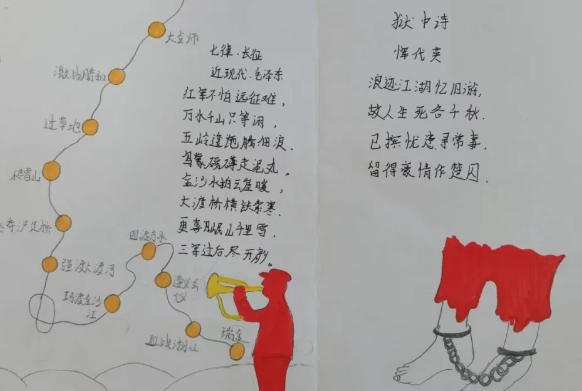 大会师
激战腊子口
过草地
爬雪山
飞夺泸定桥
强渡大渡河
巧渡金沙江
四渡赤水
遵义会议
血战湘江
瑞金
七律·长征
近现代·毛泽东
红军不怕远征难，
万水千山只等闲，
五岭逶迤腾细浪.
乌蒙磅礴走泥丸.
金沙水拍云崖暖，
大渡桥横铁索寒.
更喜岷山千里雪.
三军过后尽开颜。
狱中诗
恽代英
浪迹江湖忆旧游，
故人生死各千秋.
已摈忧患寻常事.
留得豪情作楚囚.